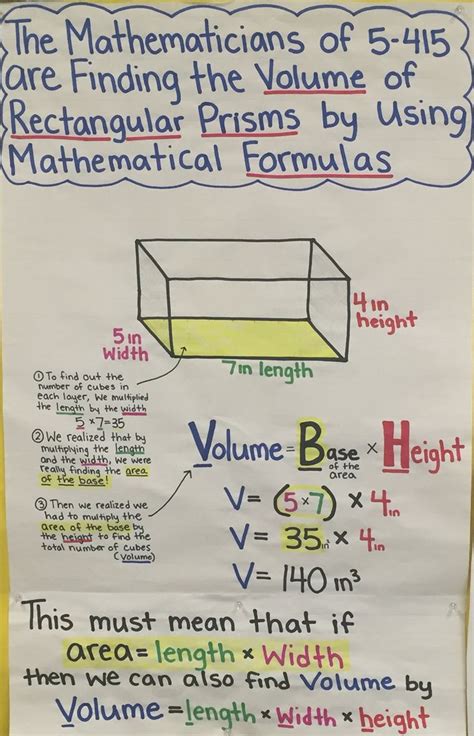 The Mathematicians of 5-415
are Finding the Volume of
Rectangular Prisms by Using
Mathematical Formulas
4in
height
5in
Width
7in length
① To find out the
number of cubes in
each layer, we multiplied
the length by the width
5 × 7=35
② We realized that by
multiplying the length
and the width, we were
really finding the area
of the base!
③ Then we realized we
had to multiply the
area of the base by
the height to find the
total number of cubes
(Volume)
Volume = Base × Height
of the
area
V= (5×7) × 4in
V= 35in² × 4in
V= 140 in³
This must mean that if
area= length × Width
then we can also find Volume by
Volume = length × Width × height